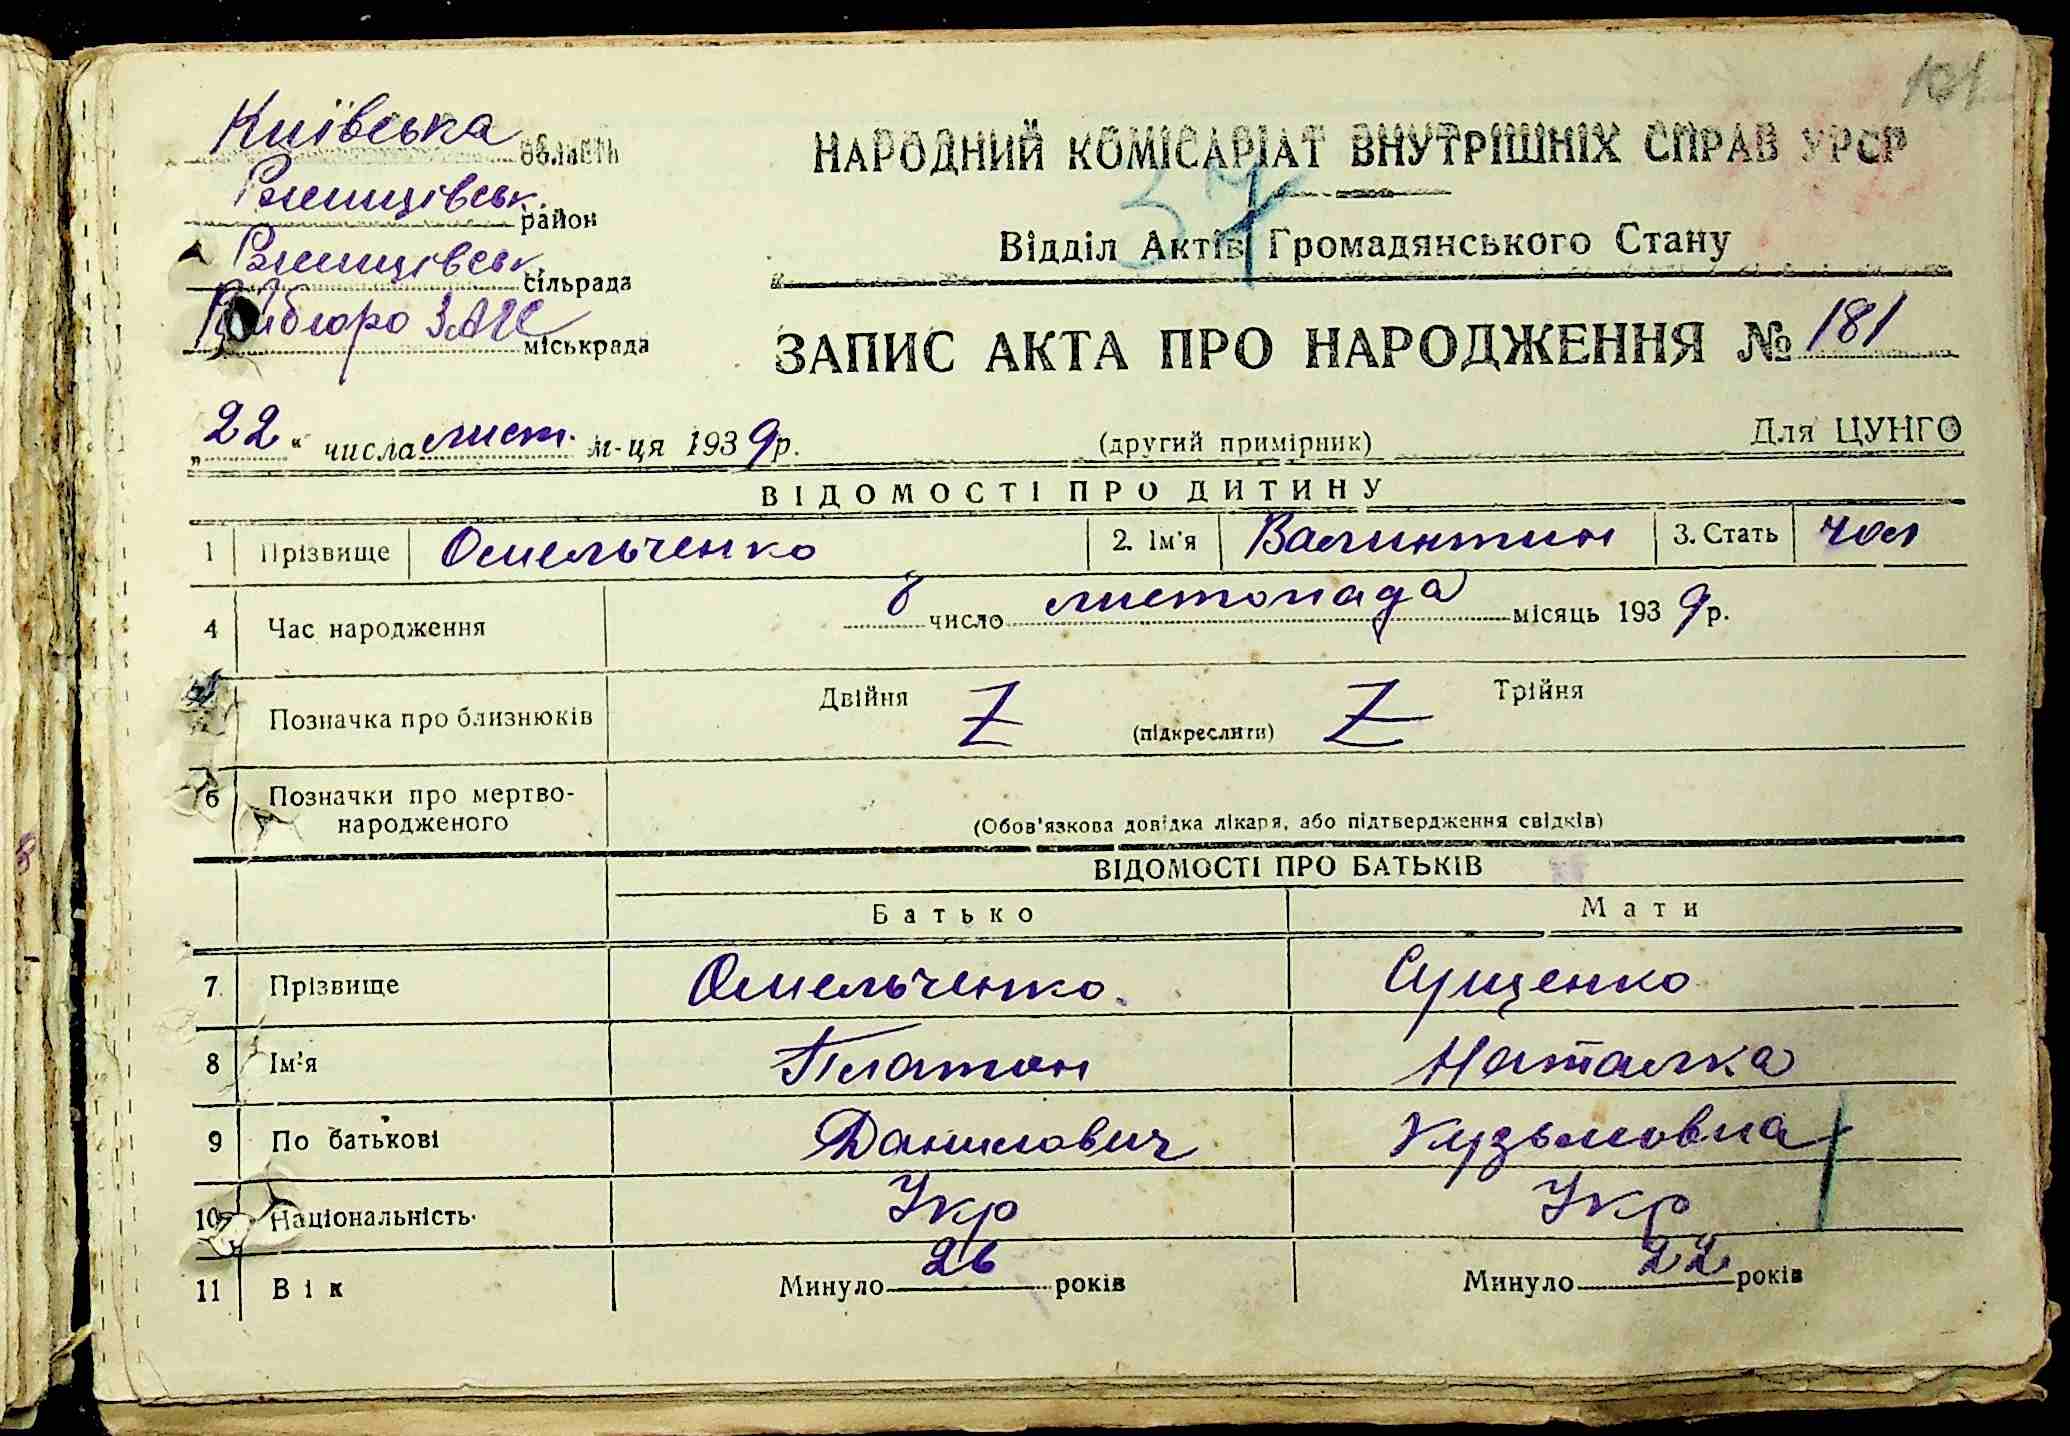 101
Київська область
НАРОДНИЙ КОМІСАРІАТ ВНУТРІШНІХ СПРАВ УРСР
37
Ржищівськ. район
Відділ Актів Громадянського Стану
Ржищівськ сільрада
Райбюро ЗАГС міськрада
ЗАПИС АКТА ПРО НАРОДЖЕННЯ № 181
„22“ числа лист. м-ця 1939 р.
(другий примірник)
Для ЦУНГО
ВІДОМОСТІ ПРО ДИТИНУ
1 Прізвище Омельченко 2. Ім'я Валинтин 3. Стать чол
4 Час народження 8 число листопада місяць 1939 р.
Позначка про близнюків Двійня Z (підкреслити) Z Трійня
6 Позначки про мертво-
народженого
(Обов'язкова довідка лікаря, або підтвердження свідків)
ВІДОМОСТІ ПРО БАТЬКІВ
Батько Мати
7 Прізвище Омельченко. Сущенко
8 Ім'я Платон Наталка
9 По батькові Данилович Кузьмовна
10 Національність Укр Укр
11 Вік Минуло 26 років Минуло 22 років